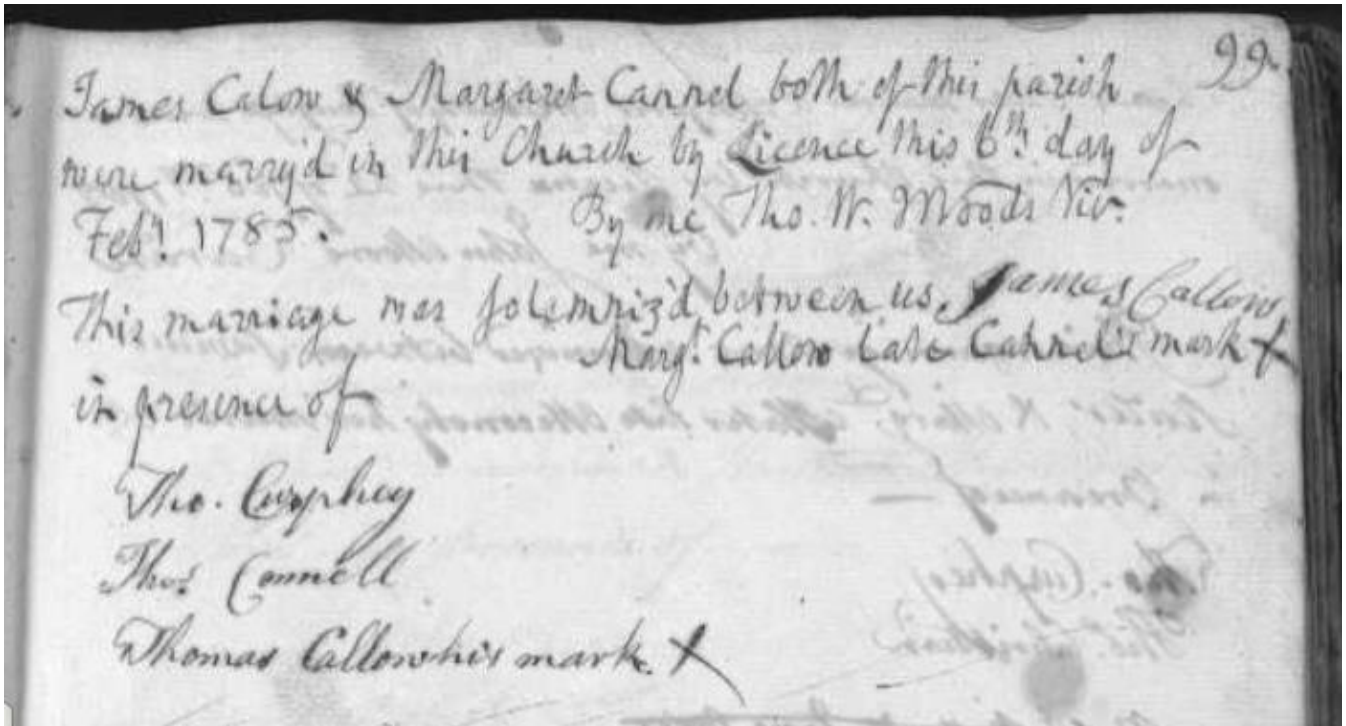 99
James Calow & Margaret Cannel both of this parish
were marry'd in this Church by Licence this 6th. day of
Feb'y. 1785. By me Tho. W. Woods Vic.
This marriage was solemniz'd between us, James Callow
Margt. Callow late Cannel's mark X
in presence of
Tho. Curphey
Thos. Connell
Thomas Callow his mark. X